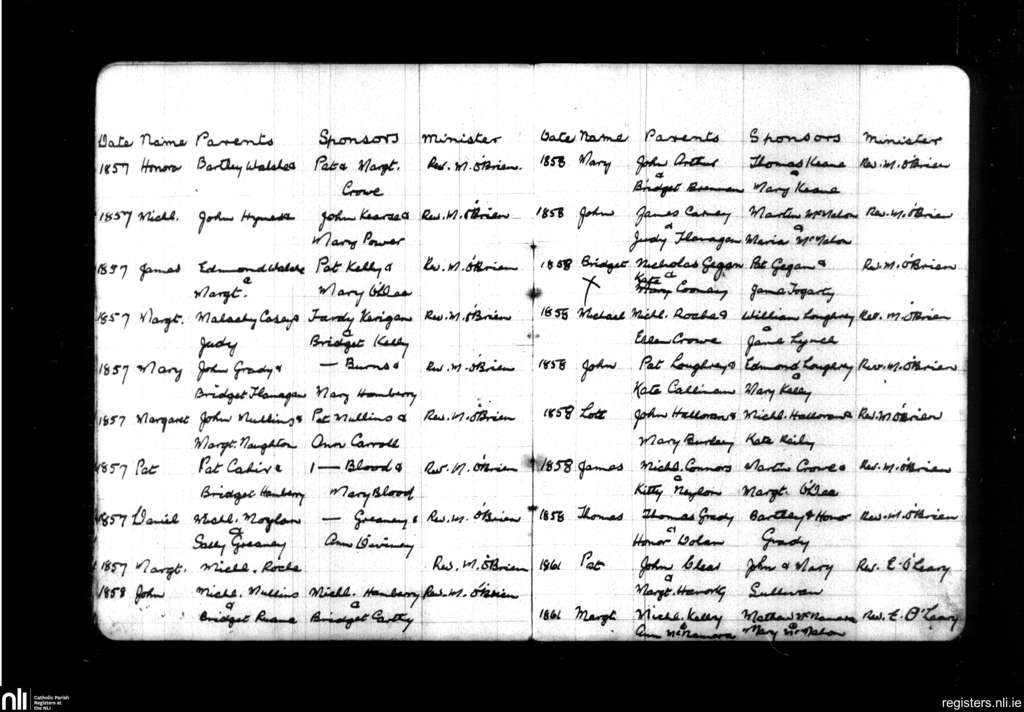 Date Name Parents Sponsors Minister
1857 Honora Bartley Walshe & Pat & Margt. Rev. M. O'Brien.
Crowe
1857 Michl. John Hynes & John Kearse & Rev. M. O'Brien
Mary Power
1857 James Edmond Walshe Pat Kelly & Rev. M. O'Brien
& Margt. Mary O'Dea
1857 Margt. Malachy Casey & Kerigan Rev. M. O'Brien
Judy & Bridget Kelly
1857 Mary John Grady & — Burns & Rev. M. O'Brien
Bridget Flanagan Mary Hanberry
1857 Margaret John Mullins & Pat Mullins & Rev. M. O'Brien
Margt. Naughton Ann Carroll
1857 Pat Pat Cahir & — Blood & Rev. M. O'Brien
Bridget Hanberry Mary Blood
1857 Daniel Michl. Moylan — Greaney & Rev. M. O'Brien
& Sally Greaney Ann
1857 Margt. Michl. Roche Rev. M. O'Brien
1858 John Michl. Mullins Michl. Hanberry Rev. M. O'Brien
& Bridget Ruane & Bridget Carthy
Date Name Parents Sponsors Minister
1858 Mary John Arthur Thomas Keane Rev. M. O'Brien
& Bridget Brennan & Mary Keane
1858 John James Carney Martin McMahon Rev. M. O'Brien
& Judy Flanagan & Maria McMahon
1858 Bridget Nicholas Gegan Pat Gegan & Rev. M. O'Brien
X & Kate Mary Cooney Jane Fogarty
1858 Michael Michl. Roche & William Loughrey Rev. M. O'Brien
Ellen Crowe & Jane Lynch
1858 John Pat Loughrey & Edmond Loughrey Rev. M. O'Brien
Kate Callinan & Mary Kelly
1858 Lott John Halloran & Michl. Halloran & Rev. M. O'Brien
Mary Burley Kate Reily
1858 James Michl. Connors Martin Crowe & Rev. M. O'Brien
& Kitty Neylon Margt. O'Dea
1858 Thomas Thomas Grady Bartley & Honor Rev. M. O'Brien
& Honor Dolan Grady
1861 Pat John Clear John & Mary Rev. E. O'Leary
& Margt. Sullivan
1861 Margt Michl. Kelly Mathew McNamara Rev. E. O'Leary
Ann McNamara & Mary McMahon
nli Catholic Parish
Registers at
the NLI
registers.nli.ie